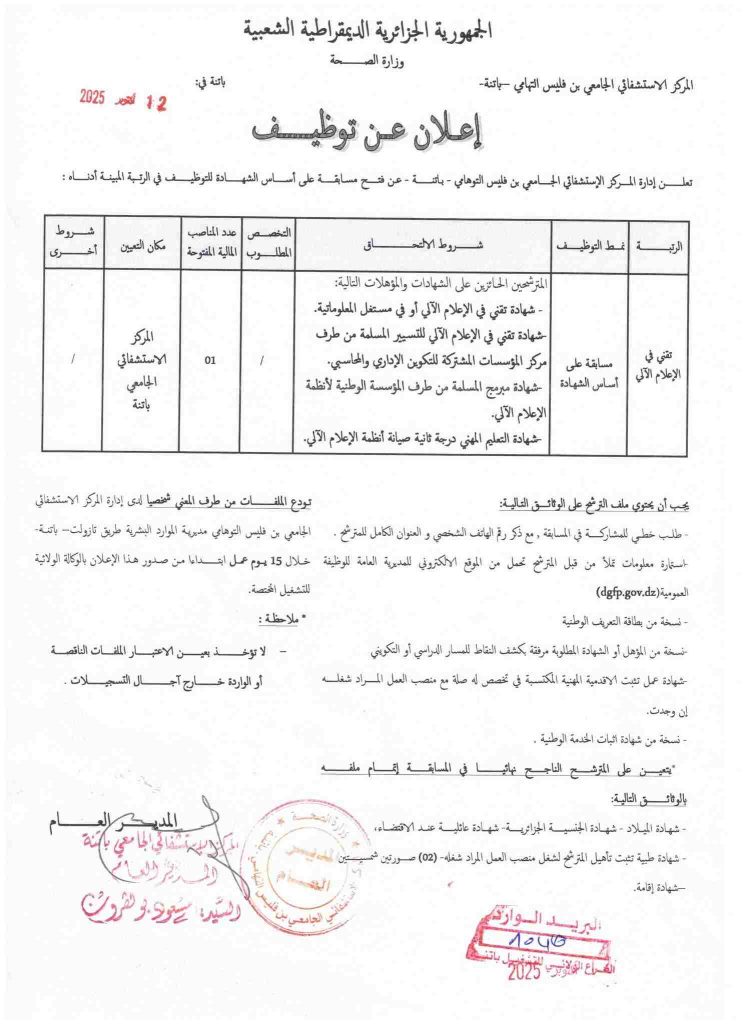 الجمهورية الجزائرية الديمقراطية الشعبية
وزارة الصـــحـــة
المركز الاستشفائي الجامعي بن فليس التهامي –باتنة-
باتنة في:
12 أكتوبر 2025
إعـلان عـن توظيـــف
تعلـن إدارة المـركـز الإستشفائي الجـامعي بن فليس التوهامي - بـاتنـــة - عـن فتـح مسـابقـة على أسـاس الشهـادة للتوظيـف في الرتبـة المبينـة أدنـاه :
الرتبـة
نمـط التوظيـف
شـروط الالتحـاق
التخصـص المطلـوب
عدد المناصب المالية المفتوحة
مكان التعيين
شـروط أخـرى
تقني في الإعلام الآلي
مسابقة على أساس الشهادة
المترشحين الحائزين على الشهادات والمؤهلات التالية:
- شهادة تقني في الإعلام الآلي أو في مستغل المعلوماتية.
-شهادة تقني في الإعلام الآلي للتسيير المسلمة من طرف
مركز المؤسسات المشتركة للتكوين الإداري والمحاسبي.
-شهادة مبرمج المسلمة من طرف المؤسسة الوطنية لأنظمة
الإعلام الآلي.
-شهادة التعليم المهني درجة ثانية صيانة أنظمة الإعلام الآلي.
/
01
المركز
الاستشفائي
الجامعي
باتنة
/
يجـب أن يحتوي ملف الترشح على الوثائـق التـاليـة:
- طلـب خطـي للمشـاركـة في المسابقة , مع ذكر رقم الهاتف الشخصي و العنوان الكامل للمترشح .
-استمارة معلومات تملأ من قبل المترشح تحمل من الموقع الالكتروني للمديرية العامة للوظيفة
العمومية(dgfp.gov.dz)
- نسخة من بطاقة التعريف الوطنية
-نسخة من المؤهل أو الشهادة المطلوبة مرفقة بكشف النقاط للمسار الدراسي أو التكويني
-شهادة عمل تثبت الاقدمية المهنية المكتسبة في تخصص له صلة مع منصب العمل المـراد شغلـه
إن وجدت.
- نسخة من شهادة اثبات الخدمة الوطنية .
*يتعيـن على المترشـح الناجـح نهائيـا في المسـابقـة إتمـام ملفـه
بالوثائـق التالية:
- شهادة الميلاد - شهادة الجنسية الجزائرية- شهادة عائلية عنـد الاقتضاء،
- شهادة طبية تثبت تأهيل المترشح لشغل منصب العمل المراد شغله- (02) صورتين شمسيـتـين
–شهادة إقامة.
تـودع الملفـات من طرف المعني شخصيا لدى إدارة المركز الاستشفائي
الجامعي بن فليس التوهامي مديرية الموارد البشرية طريق تازولت– باتنـة-
خلال 15 يـوم عمـل ابتـداءا مـن صـدور هـذا الإعلان بالوكالة الولائية
للتشغيل المختصة.
* ملاحظـة :
– لا تؤخـذ بعيـن الاعتبـار الملفـات الناقصـة
أو الواردة خـارج آجـال التسجيـلات .
المديـر العـام
المركز الاستشفائي الجامعي باتنة
المدير العام
السيّد: مسعود بو لقرون
وزارة الصحة
المدير
العام
المركز الاستشفائي الجامعي بن فليس التهامي
البريـد الـوارد
1040
الفرع الولائي للتشغيل باتنة
أكتوبر 2025